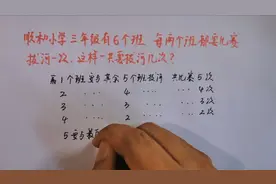 顺和小学三年级有6个班,每两个班都要比赛
拔河一次,这样一共要拔河几次?
第1个班要与其余5个班拔河 共比赛5次
2 .... 4 .... 4次
3 .... 3 .... 3次
4 .... 2 .... 2次
5要与